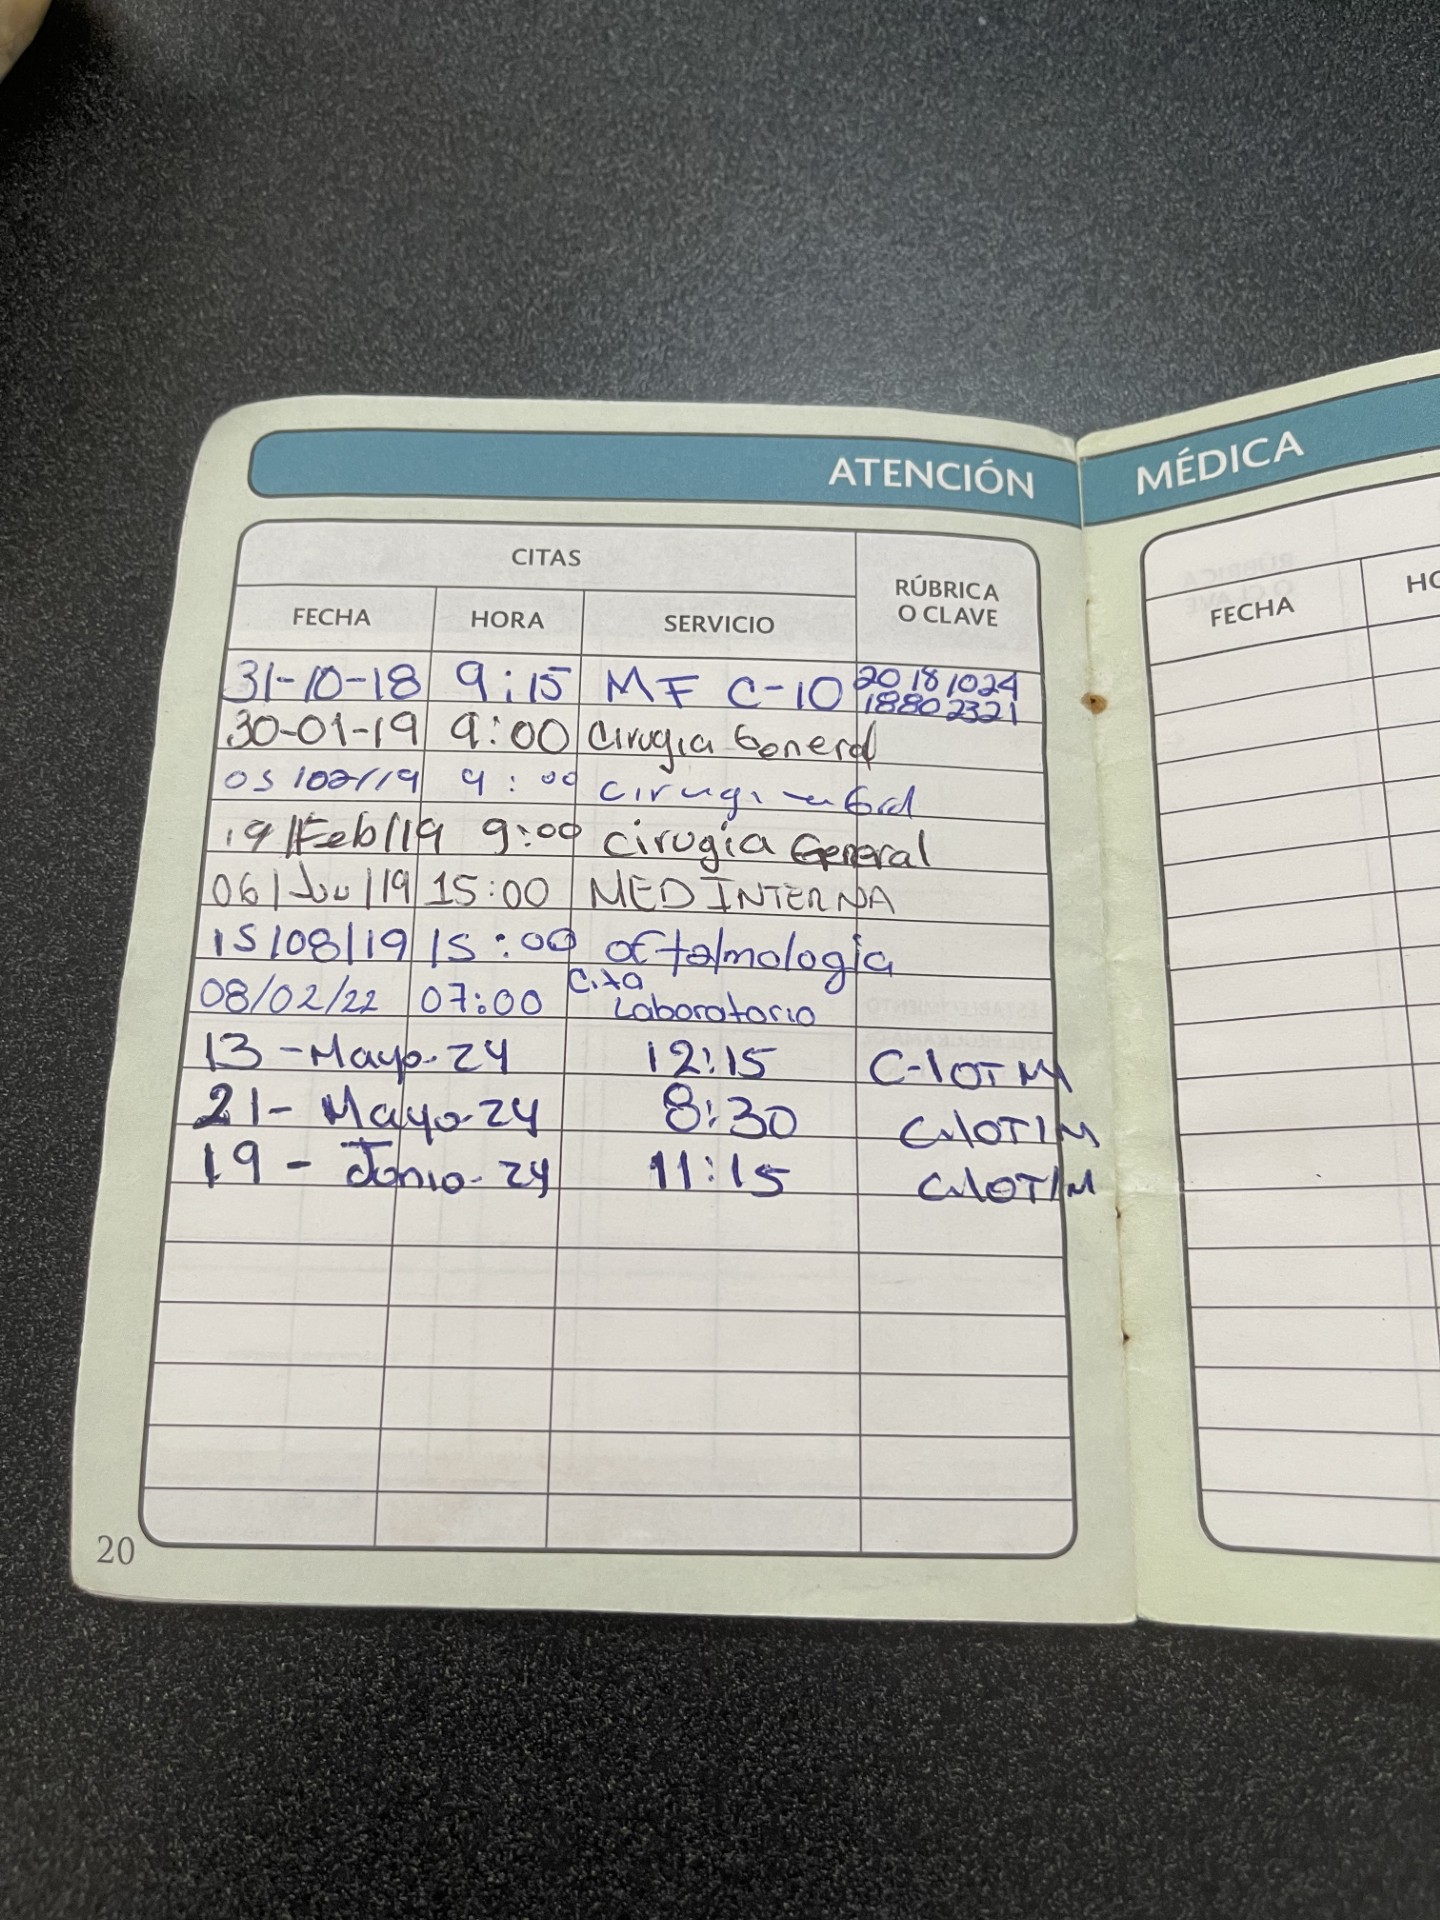 ATENCIÓN MÉDICA
CITAS
RÚBRICA
O CLAVE
FECHA HORA SERVICIO
31-10-18 9:15 MF C-10 20181024
18802321
30-01-19 9:00 Cirugia General
05/02/19 9:00 cirugi Gral
19/Feb/19 9:00 cirugia General
06/Ju/19 15:00 MED INTERNA
15/08/19 15:00 oftalmologia
08/02/22 07:00 Cita
Laboratorio
13-Mayo-24 12:15 C-10TM
21-Mayo-24 8:30 C-10T/M
19-Junio-24 11:15 C-10T/M
20
FECHA HO